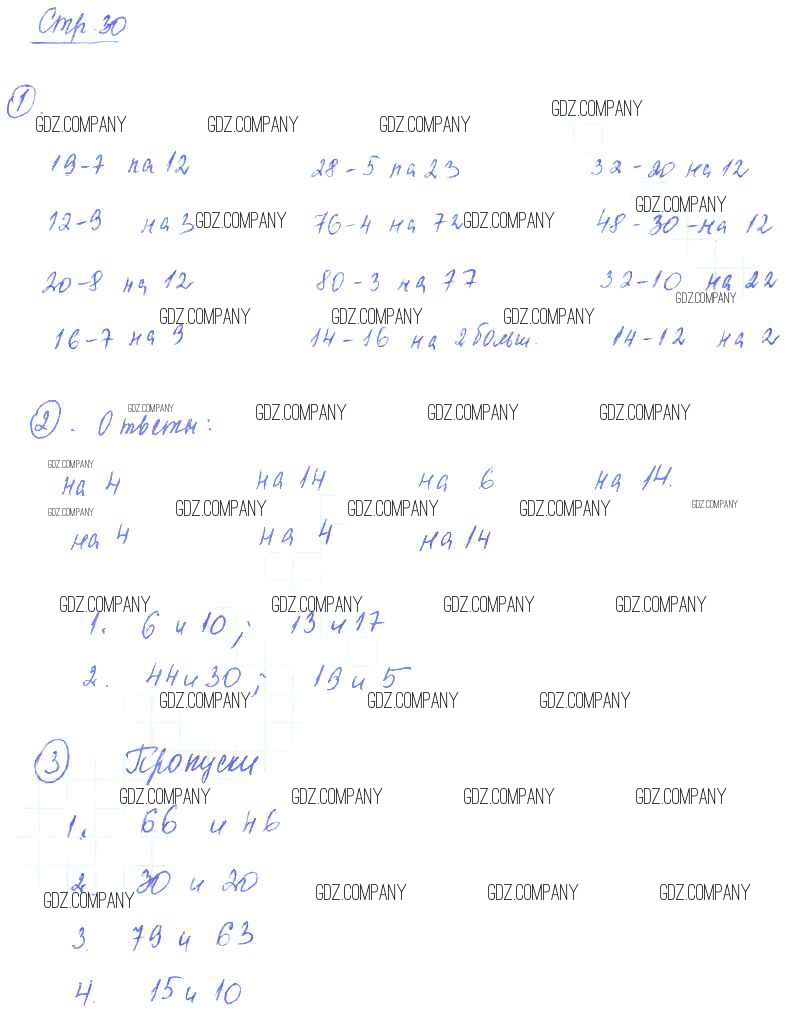 Стр. 30
1
GDZ.COMPANY GDZ.COMPANY GDZ.COMPANY GDZ.COMPANY
19-7 на 12 28-5 на 23 32-20 на 12
GDZ.COMPANY
12-9 на 3 GDZ.COMPANY 76-4 на 72 GDZ.COMPANY 48-30-на 12
20-8 на 12 80-3 на 77 32-10 на 22
GDZ.COMPANY
GDZ.COMPANY GDZ.COMPANY GDZ.COMPANY
16-7 на 9 14-16 на 2 больш. 14-12 на 2
GDZ.COMPANY GDZ.COMPANY GDZ.COMPANY GDZ.COMPANY
2. Ответы:
GDZ.COMPANY
на 4 на 14 на 6 на 14.
GDZ.COMPANY GDZ.COMPANY GDZ.COMPANY GDZ.COMPANY GDZ.COMPANY
на 4 на 4 на 14
GDZ.COMPANY GDZ.COMPANY GDZ.COMPANY GDZ.COMPANY
1. 6 и 10; 13 и 17
2. 44 и 30; 19 и 5
GDZ.COMPANY GDZ.COMPANY GDZ.COMPANY
3 Пропуски
GDZ.COMPANY GDZ.COMPANY GDZ.COMPANY GDZ.COMPANY
1. 66 и 46
2. 30 и 20
GDZ.COMPANY GDZ.COMPANY GDZ.COMPANY GDZ.COMPANY
3. 79 и 63
4. 15 и 10